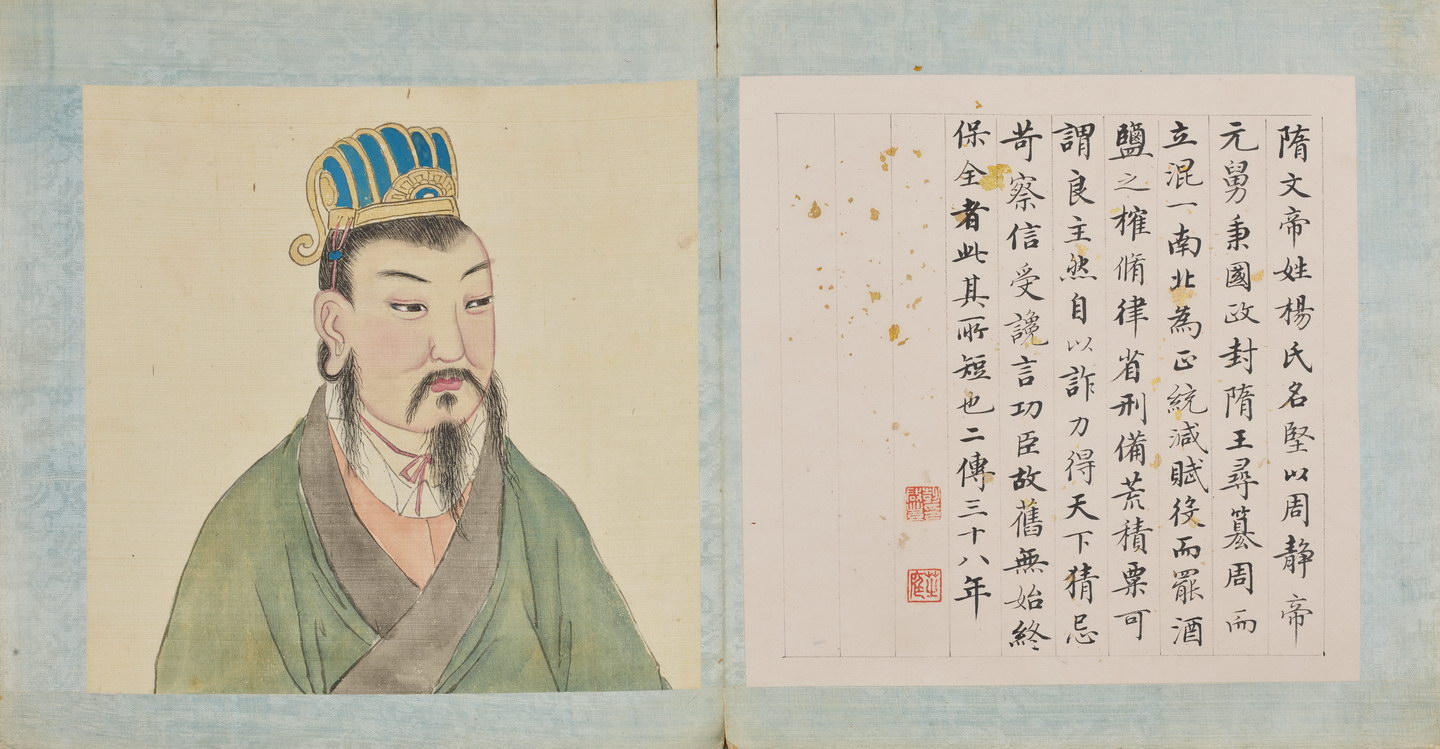 隋文帝姓楊氏名堅以周静帝
元舅秉國政封隋王尋簒周而
立混一南北為正統減賦役而罷酒
鹽之榷脩律省刑備荒積粟可
謂良主然自以詐力得天下猜忌
苛察信受讒言功臣故舊無始終
保全者此其所短也二傳三十八年